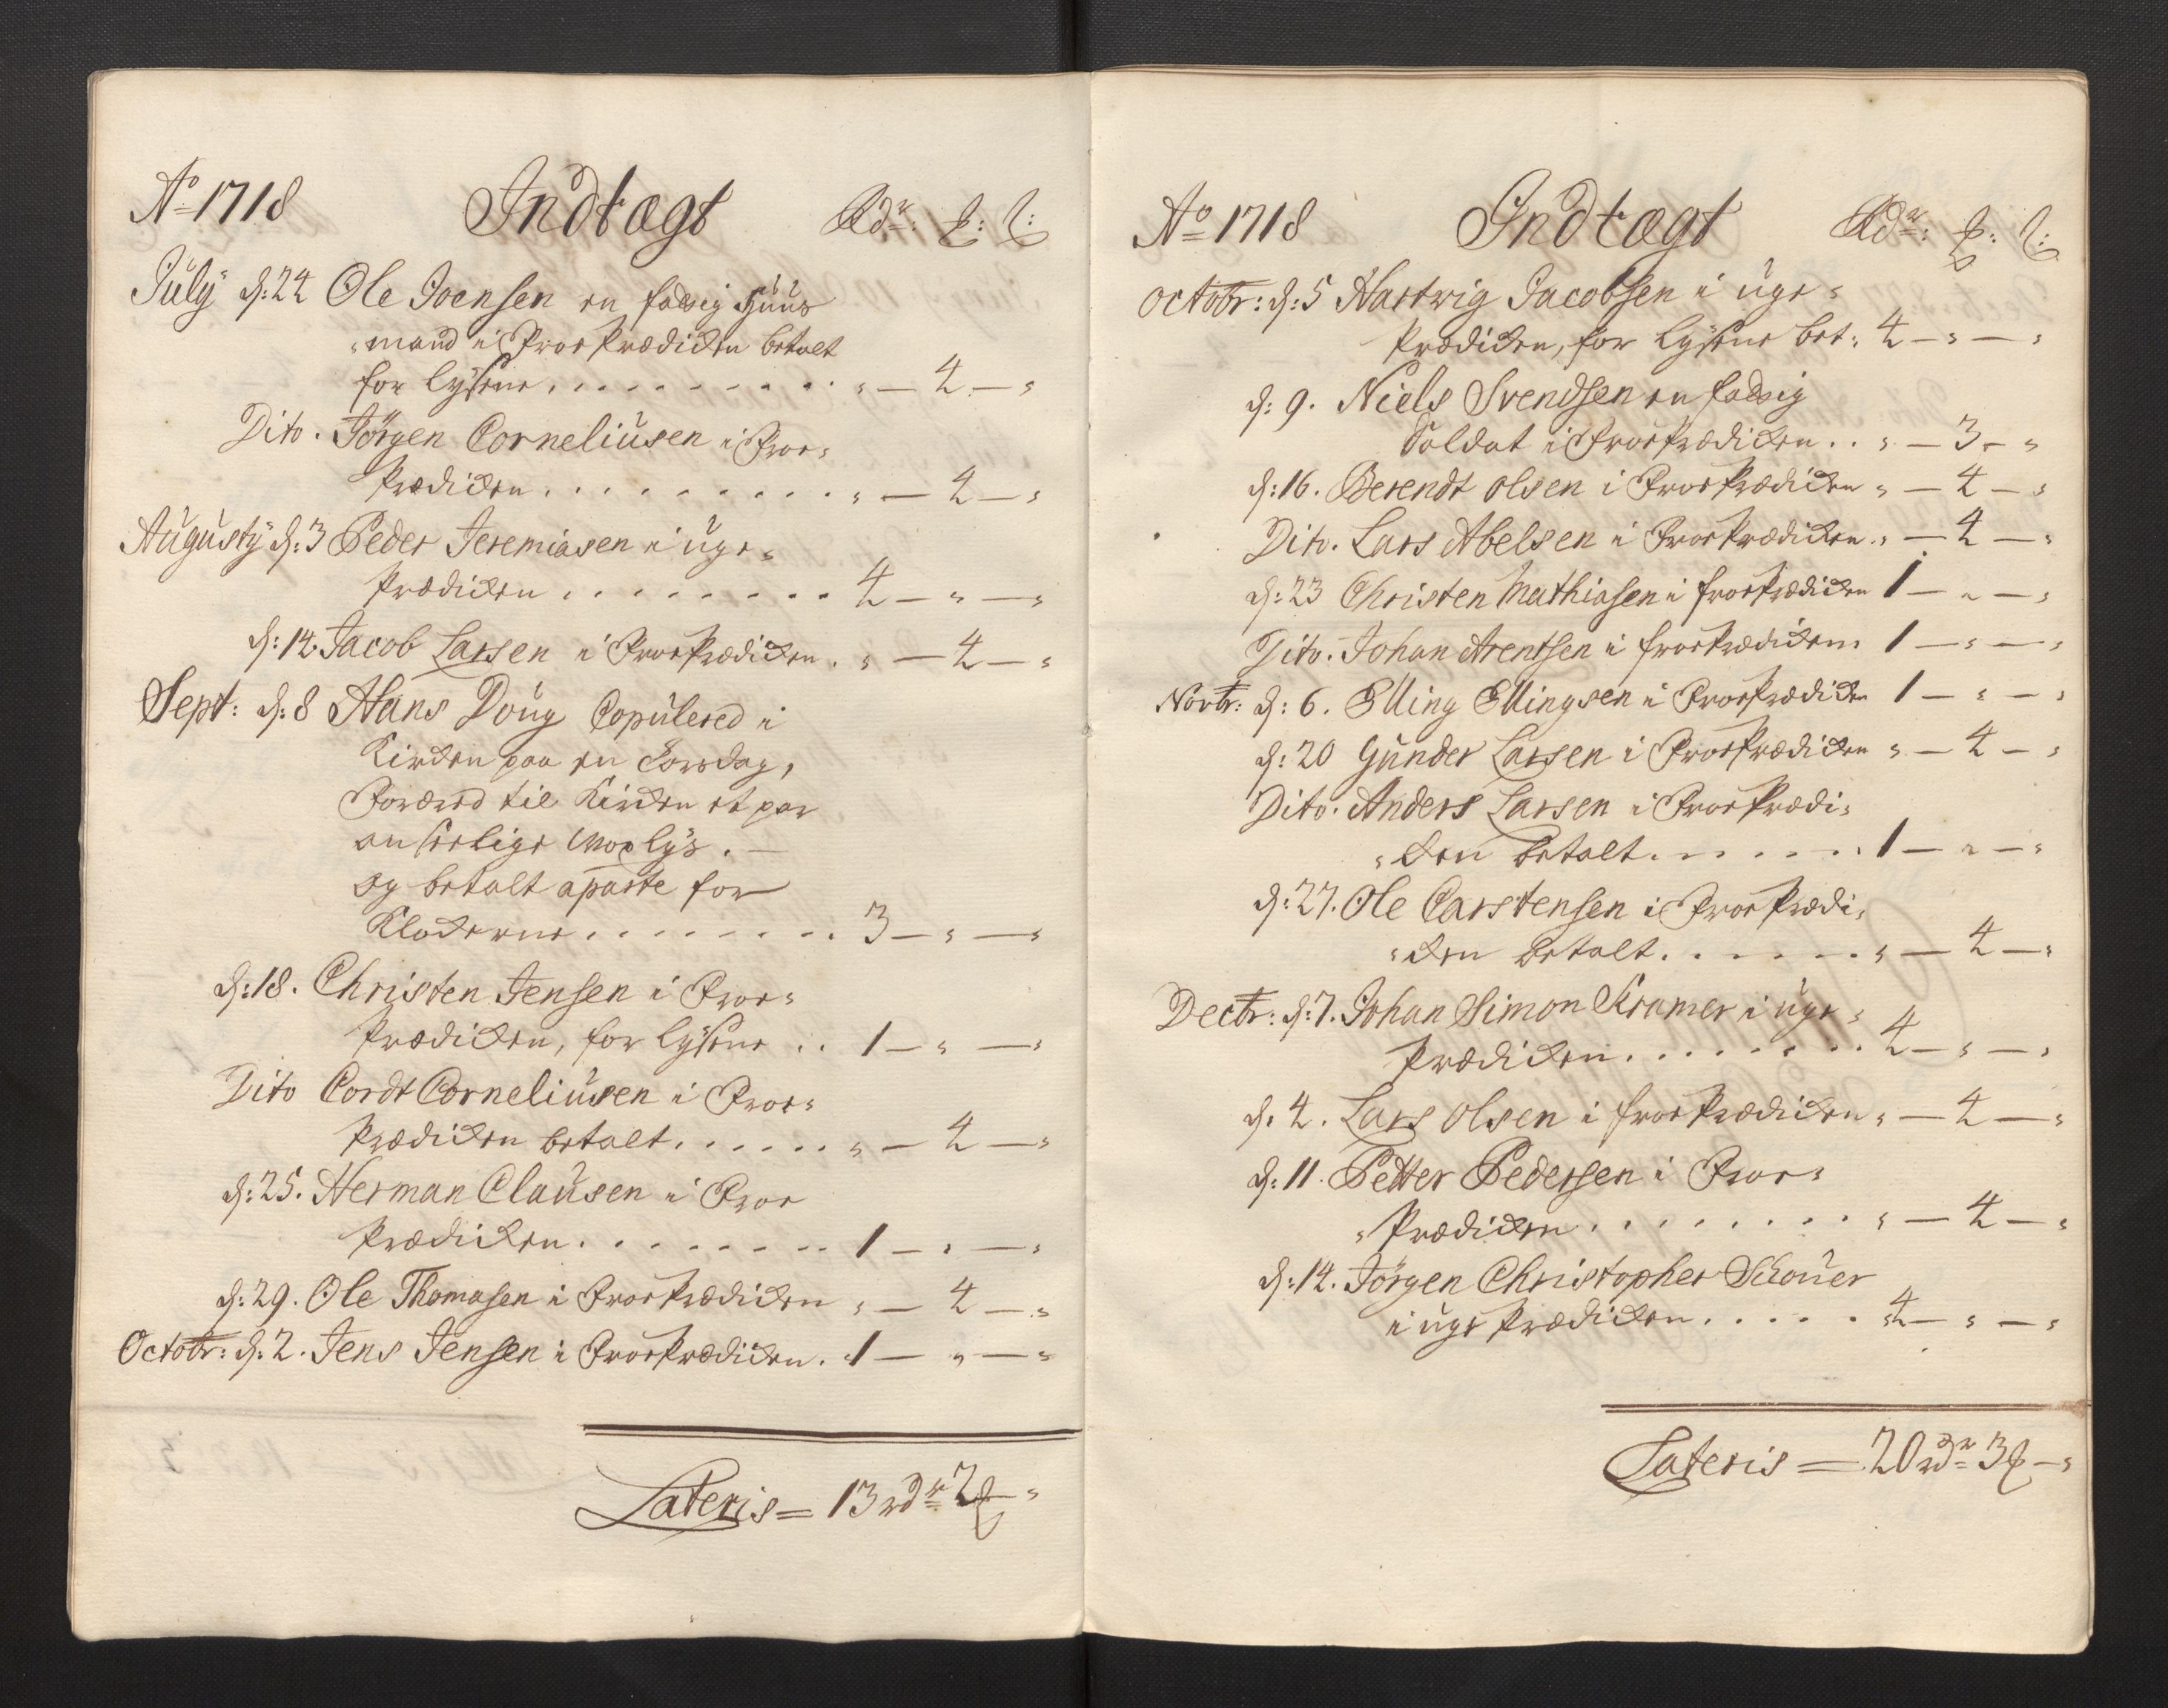 Ao 1718 Indtægt Rdr: ₰: ß:
July d: 24 Ole Joensen en fattig Huus
mand i FroePrædiken betalt
for lysene . . . . . . . . . . „ — 4 — „
Dito. Jörgen Corneliusen i Froe=
Prædiken . . . . . . . . . . „ — 4 — „
Augustÿ d: 3 Peder Jeremiasen i uge=
Prædiken . . . . . . . . . 4 — „ — „
d: 14. Jacob Larsen i FroePrædiken . „ — 4 — „
Sept: d: 8 Hans Doug Copulered i
Kirken paa en Torsdag,
Foræred til Kirken et par
anseelige Wox lÿs. —
og betalt aparte for
Klokerne . . . . . . . . 3 — „ — „
d: 18. Christen Jensen i Froe=
Prædiken, for lysene . . 1 — „ — „
Dito Cordt Corneliusen i Froe=
Prædiken betalt . . . . . . „ — 4 — „
d: 25. Herman Clausen i Froe
Prædiken . . . . . . . . 1 — „ — „
d: 29. Ole Thomasen i FroePrædiken „ — 4 — „
Octobr: d: 2. Jens Jensen i FroePrædiken . 1 — „ — „
Lateris = 13 rdr 2 ₰ — „
Ao 1718 Indtægt Rdr: ₰: ß:
Octobr: d: 5 Hartvig Jacobsen i uge=
Prædiken, for lÿsene bet: 4 — „ — „
d: 9. Niels Svendsen en fattig
Soldat i FroePrædiken . . „ — 3 — „
d: 16. Berendt Olsen i FroePrædiken „ — 4 — „
Dito. Lars Abelsen i FroePrædiken . „ — 4 — „
d: 23 Christen Mathiasen i froePrædiken 1 — „ — „
Dito. Johan Arentsen i froePrædiken 1 — „ — „
Novbr: d: 6. Elling Ellingsen i FroePrædiken 1 — „ — „
d: 20 Gunder Larsen i FroePrædiken „ — 4 — „
Dito. Anders Larsen i FroePrædi=
ken betalt . . . . . . . 1 — „ — „
d: 27. Ole Carstensen i FroePrædi=
ken betalt . . . . . . . „ — 4 — „
Decbr: d: 7. Johan Simon Kramer i uge=
Prædiken . . . . . . . . 4 — „ — „
d. 4. Lars Olsen i froePrædiken „ — 4 — „
d: 11. Petter Pedersen i Froe=
Prædiken . . . . . . . . „ — 4 — „
d: 14. Jörgen Christopher Schouer
i uge Prædiken . . . . . 4 — „ — „
Lateris = 20 rdr 3 ₰ — „